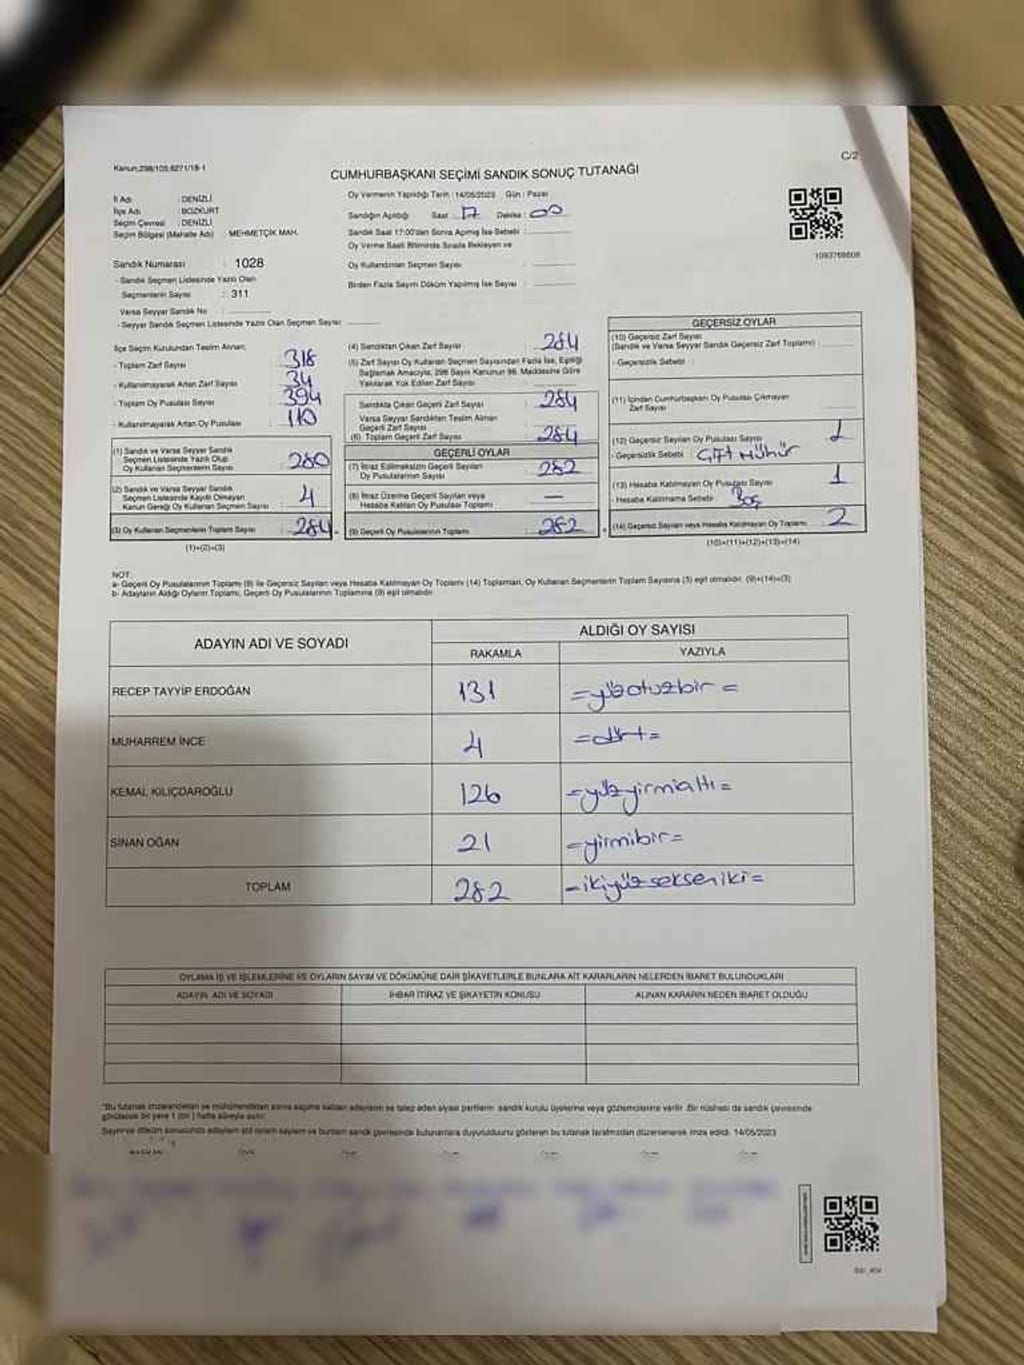 Kanun:298/105:6271/18-1
C/2
CUMHURBAŞKANI SEÇİMİ SANDIK SONUÇ TUTANAĞI
İl Adı : DENİZLİ
İlçe Adı : BOZKURT
Seçim Çevresi : DENİZLİ
Seçim Bölgesi (Mahalle Adı) : MEHMETÇİK MAH.
Oy Vermenin Yapıldığı Tarih : 14/05/2023 Gün : Pazar
Sandığın Açıldığı Saat : 17 Dakika : 00
Sandık Saat 17:00'den Sonra Açılmış İse Sebebi :
Oy Verme Saati Bitiminde Sırada Bekleyen ve
Oy Kullandırılan Seçmen Sayısı :
Birden Fazla Sayım Döküm Yapılmış İse Sayısı :
1093768608
Sandık Numarası : 1028
- Sandık Seçmen Listesinde Yazılı Olan
Seçmenlerin Sayısı : 311
Varsa Seyyar Sandık No :
- Seyyar Sandık Seçmen Listesinde Yazılı Olan Seçmen Sayısı :
İlçe Seçim Kurulundan Teslim Alınan;
- Toplam Zarf Sayısı : 318
- Kullanılmayarak Artan Zarf Sayısı : 34
- Toplam Oy Pusulası Sayısı : 394
- Kullanılmayarak Artan Oy Pusulası : 110
(1) Sandık ve Varsa Seyyar Sandık
Seçmen Listesinde Yazılı Olup
Oy Kullanan Seçmenlerin Sayısı : 280
(2) Sandık ve Varsa Seyyar Sandık
Seçmen Listesinde Kayıtlı Olmayan
Kanun Gereği Oy Kullanan Seçmen Sayısı : 4
(3) Oy Kullanan Seçmenlerin Toplam Sayısı : 284
(1)+(2)=(3)
(4) Sandıktan Çıkan Zarf Sayısı : 284
(5) Zarf Sayısı Oy Kullanan Seçmen Sayısından Fazla İse, Eşitliği
Sağlamak Amacıyla; 298 Sayılı Kanunun 98. Maddesine Göre
Yakılarak Yok Edilen Zarf Sayısı :
Sandıkta Çıkan Geçerli Zarf Sayısı : 284
Varsa Seyyar Sandıktan Teslim Alınan
Geçerli Zarf Sayısı :
(6) Toplam Geçerli Zarf Sayısı : 284
GEÇERLİ OYLAR
(7) İtiraz Edilmeksizin Geçerli Sayılan
Oy Pusulalarının Sayısı : 282
(8) İtiraz Üzerine Geçerli Sayılan veya
Hesaba Katılan Oy Pusulası Toplamı : —
(9) Geçerli Oy Pusulalarının Toplamı : 282
GEÇERSİZ OYLAR
(10) Geçersiz Zarf Sayısı
(Sandık ve Varsa Seyyar Sandık Geçersiz Zarf Toplamı) :
- Geçersizlik Sebebi :
(11) İçinden Cumhurbaşkanı Oy Pusulası Çıkmayan
Zarf Sayısı :
(12) Geçersiz Sayılan Oy Pusulası Sayısı : 1
- Geçersizlik Sebebi : Çift Mühür
(13) Hesaba Katılmayan Oy Pusulası Sayısı : 1
- Hesaba Katılmama Sebebi : Boş
(14) Geçersiz Sayılan veya Hesaba Katılmayan Oy Toplamı : 2
(10)+(11)+(12)+(13)=(14)
NOT:
a- Geçerli Oy Pusulalarının Toplamı (9) ile Geçersiz Sayılan veya Hesaba Katılmayan Oy Toplamı (14) Toplamları, Oy Kullanan Seçmenlerin Toplam Sayısına (3) eşit olmalıdır. (9)+(14)=(3)
b- Adayların Aldığı Oyların Toplamı, Geçerli Oy Pusulalarının Toplamına (9) eşit olmalıdır.
ADAYIN ADI VE SOYADI
ALDIĞI OY SAYISI
RAKAMLA YAZIYLA
RECEP TAYYİP ERDOĞAN 131 =yüzotuzbir=
MUHARREM İNCE 4 =dört=
KEMAL KILIÇDAROĞLU 126 =yüzyirmialtı=
SİNAN OĞAN 21 =yirmibir=
TOPLAM 282 =ikiyüzsekseniki=
OYLAMA İŞ VE İŞLEMLERİNE VE OYLARIN SAYIM VE DÖKÜMÜNE DAİR ŞİKAYETLERLE BUNLARA AİT KARARLARIN NELERDEN İBARET BULUNDUKLARI
ADAYIN ADI VE SOYADI İHBAR İTİRAZ VE ŞİKAYETİN KONUSU ALINAN KARARIN NEDEN İBARET OLDUĞU
"Bu tutanak imzalandıktan ve mühürlendikten sonra seçime katılan adayların ve talep eden siyasi partilerin sandık kurulu üyelerine veya gözlemcilerine verilir. Bir nüshası da sandık çevresinde
görülecek bir yere 1 (bir) hafta süreyle asılır.
Sayım ve döküm sonucunda adayların aldığı oyların sayıları ve bunların sandık çevresinde bulunanlara duyurulduğunu gösteren bu tutanak tarafımızdan düzenlenerek imza edildi. 14/05/2023